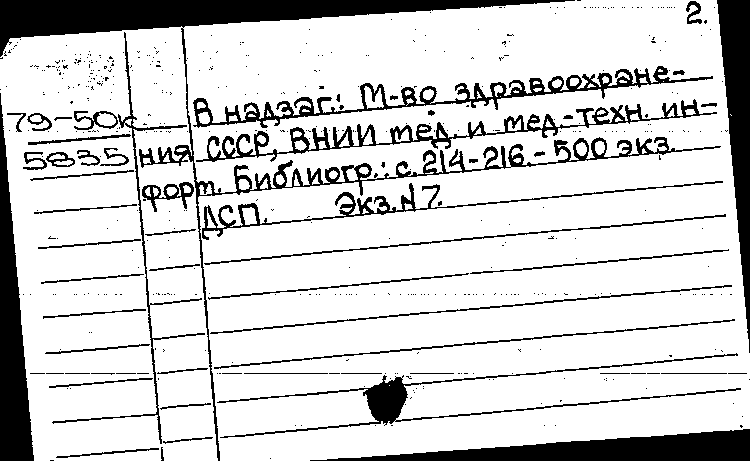 2.
79-50к
5835
В надзаг.: М-во здравоохране-
ния СССР, ВНИИ мед. и мед.-техн. ин-
форм. Библиогр.: с. 214-216. - 500 экз.
ДСП. Экз. N 7.